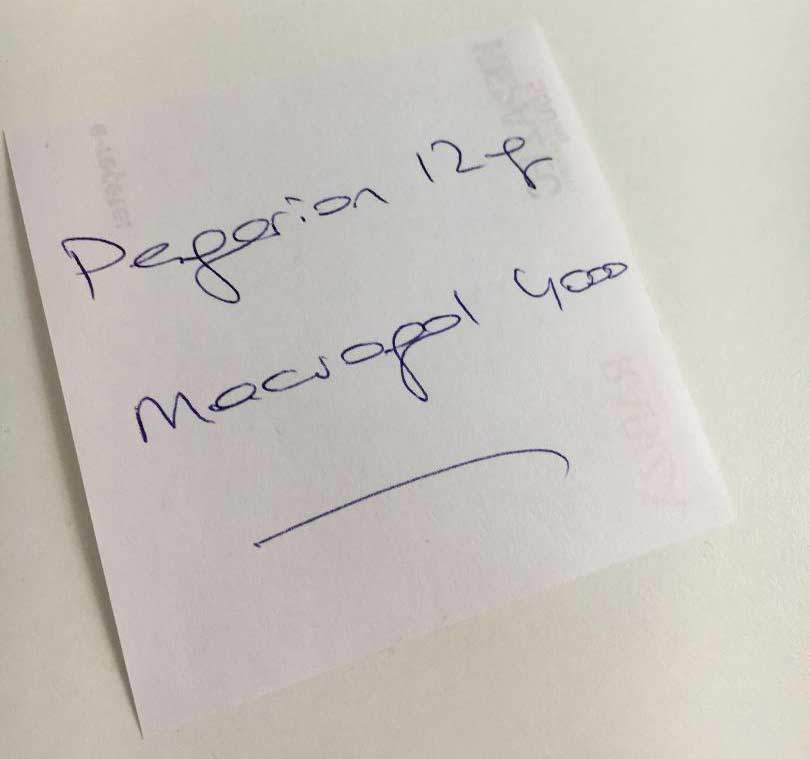 Pegorion 12g
Macrogol 4000